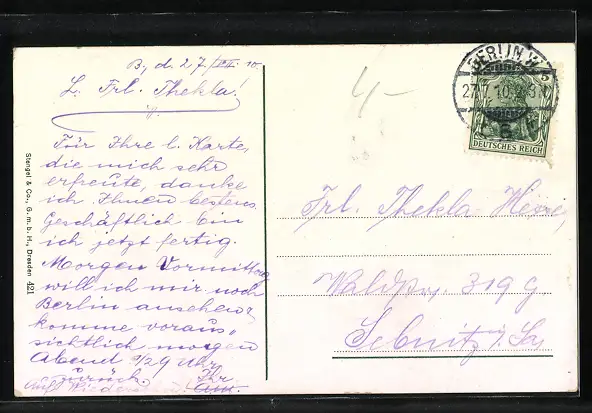 B, d. 27/VII. 10.
L. Frl. Thekla!
Für Ihre l. Karte,
die mich sehr
erfreute, danke
ich Ihnen bestens.
Geschäftlich bin
ich jetzt fertig.
Morgen Vormittag
will ich mir noch
Berlin ansehen,
komme voraus-
sichtlich morgen
Abend 1/29 Uhr
zurück. Ihr
Auf Wieders
Stengel & Co., G. m. b. H., Dresden 421
4-
BERLIN W.
27.7.10.
DEUTSCHES REICH
Frl. Thekla
Waldstr. 319 G
Sebnitz i/Sa